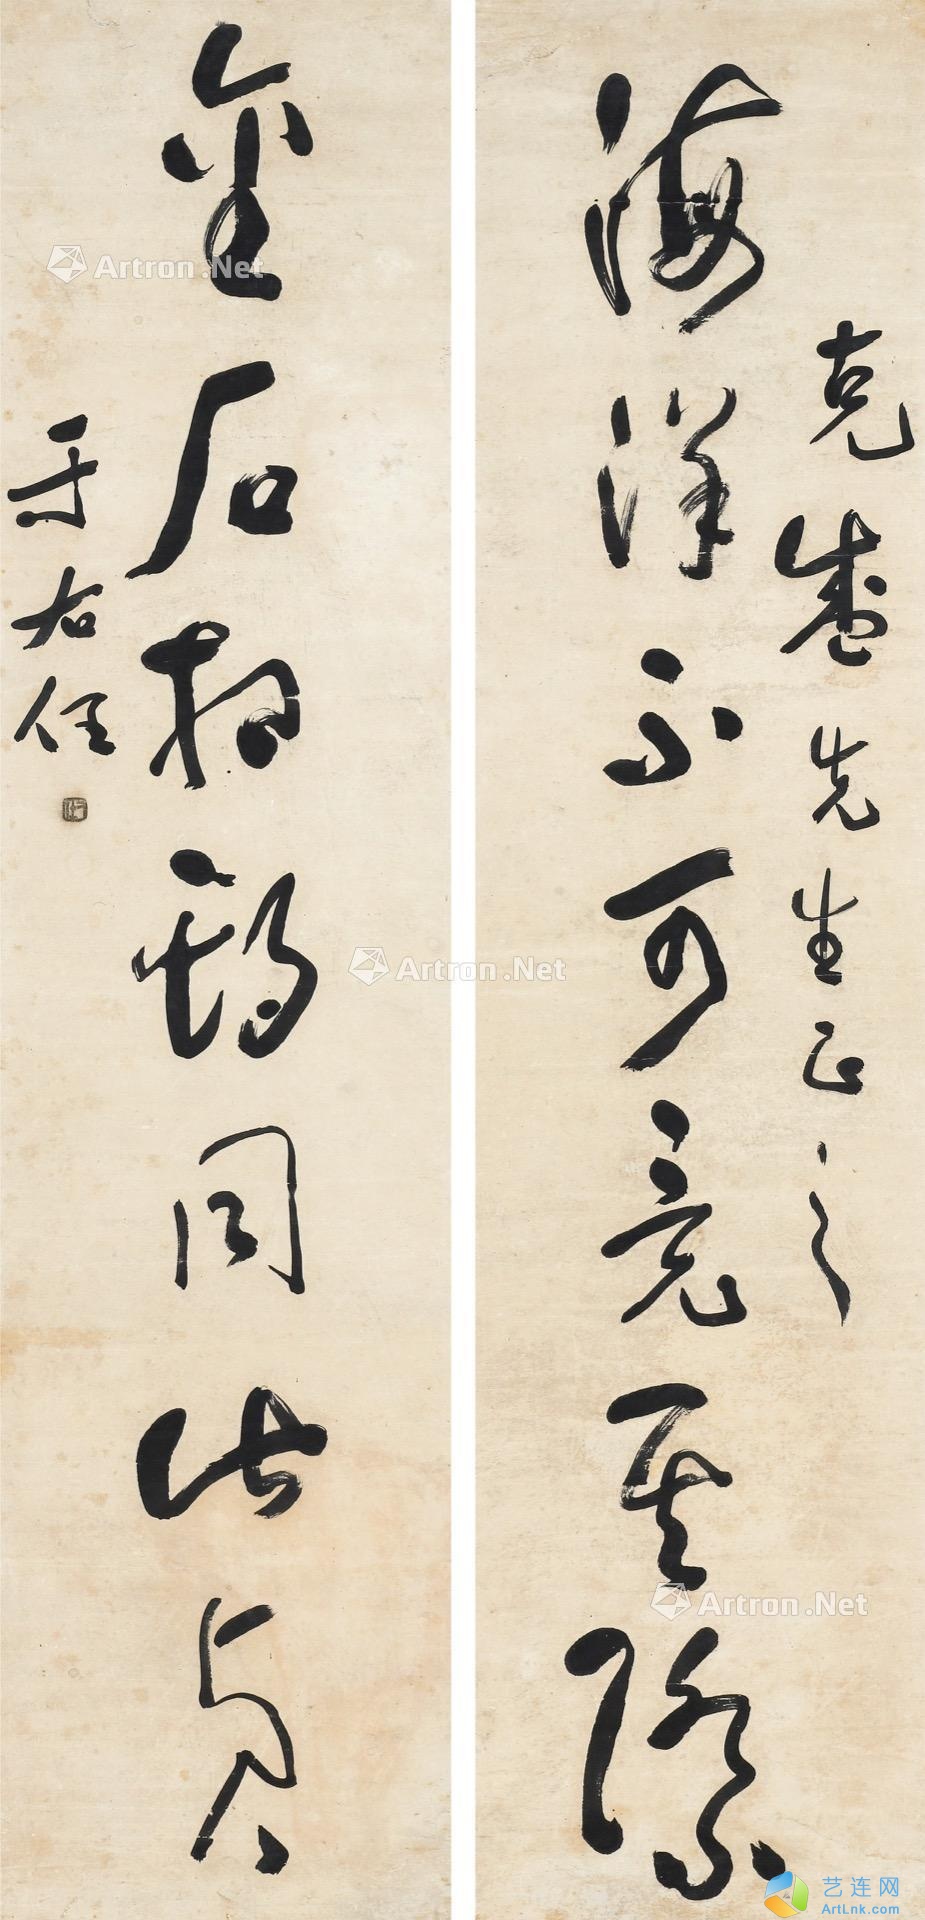 克盛先生正之
海洋不可竟其際
金石相期同此貞
于右任
Artron.Net
Artron.Net
Artron.Net
艺连网
ArtLnk.com